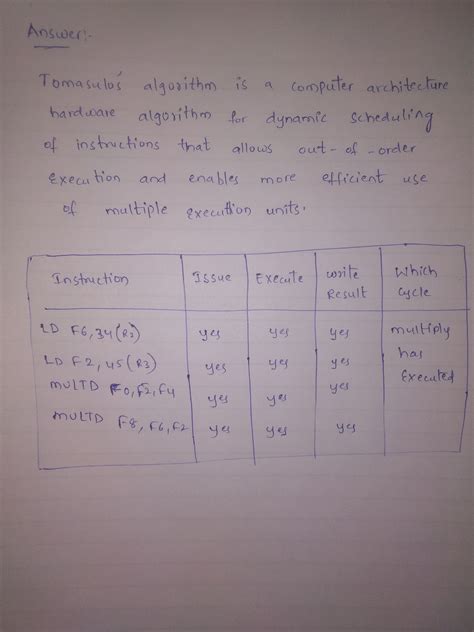 Answer:-
Tomasulo's algorithm is a computer architecture
hardware algorithm for dynamic scheduling
of instructions that allows out-of-order
execution and enables more efficient use
of multiple execution units.
Instruction Issue Execute Write Result Which Cycle
LD F6,34(R2) yes yes yes multiply
LD F2,45(R3) yes yes yes has
MULTD F0,F2,F4 yes yes yes Executed
MULTD F8,F6,F2 yes yes yes